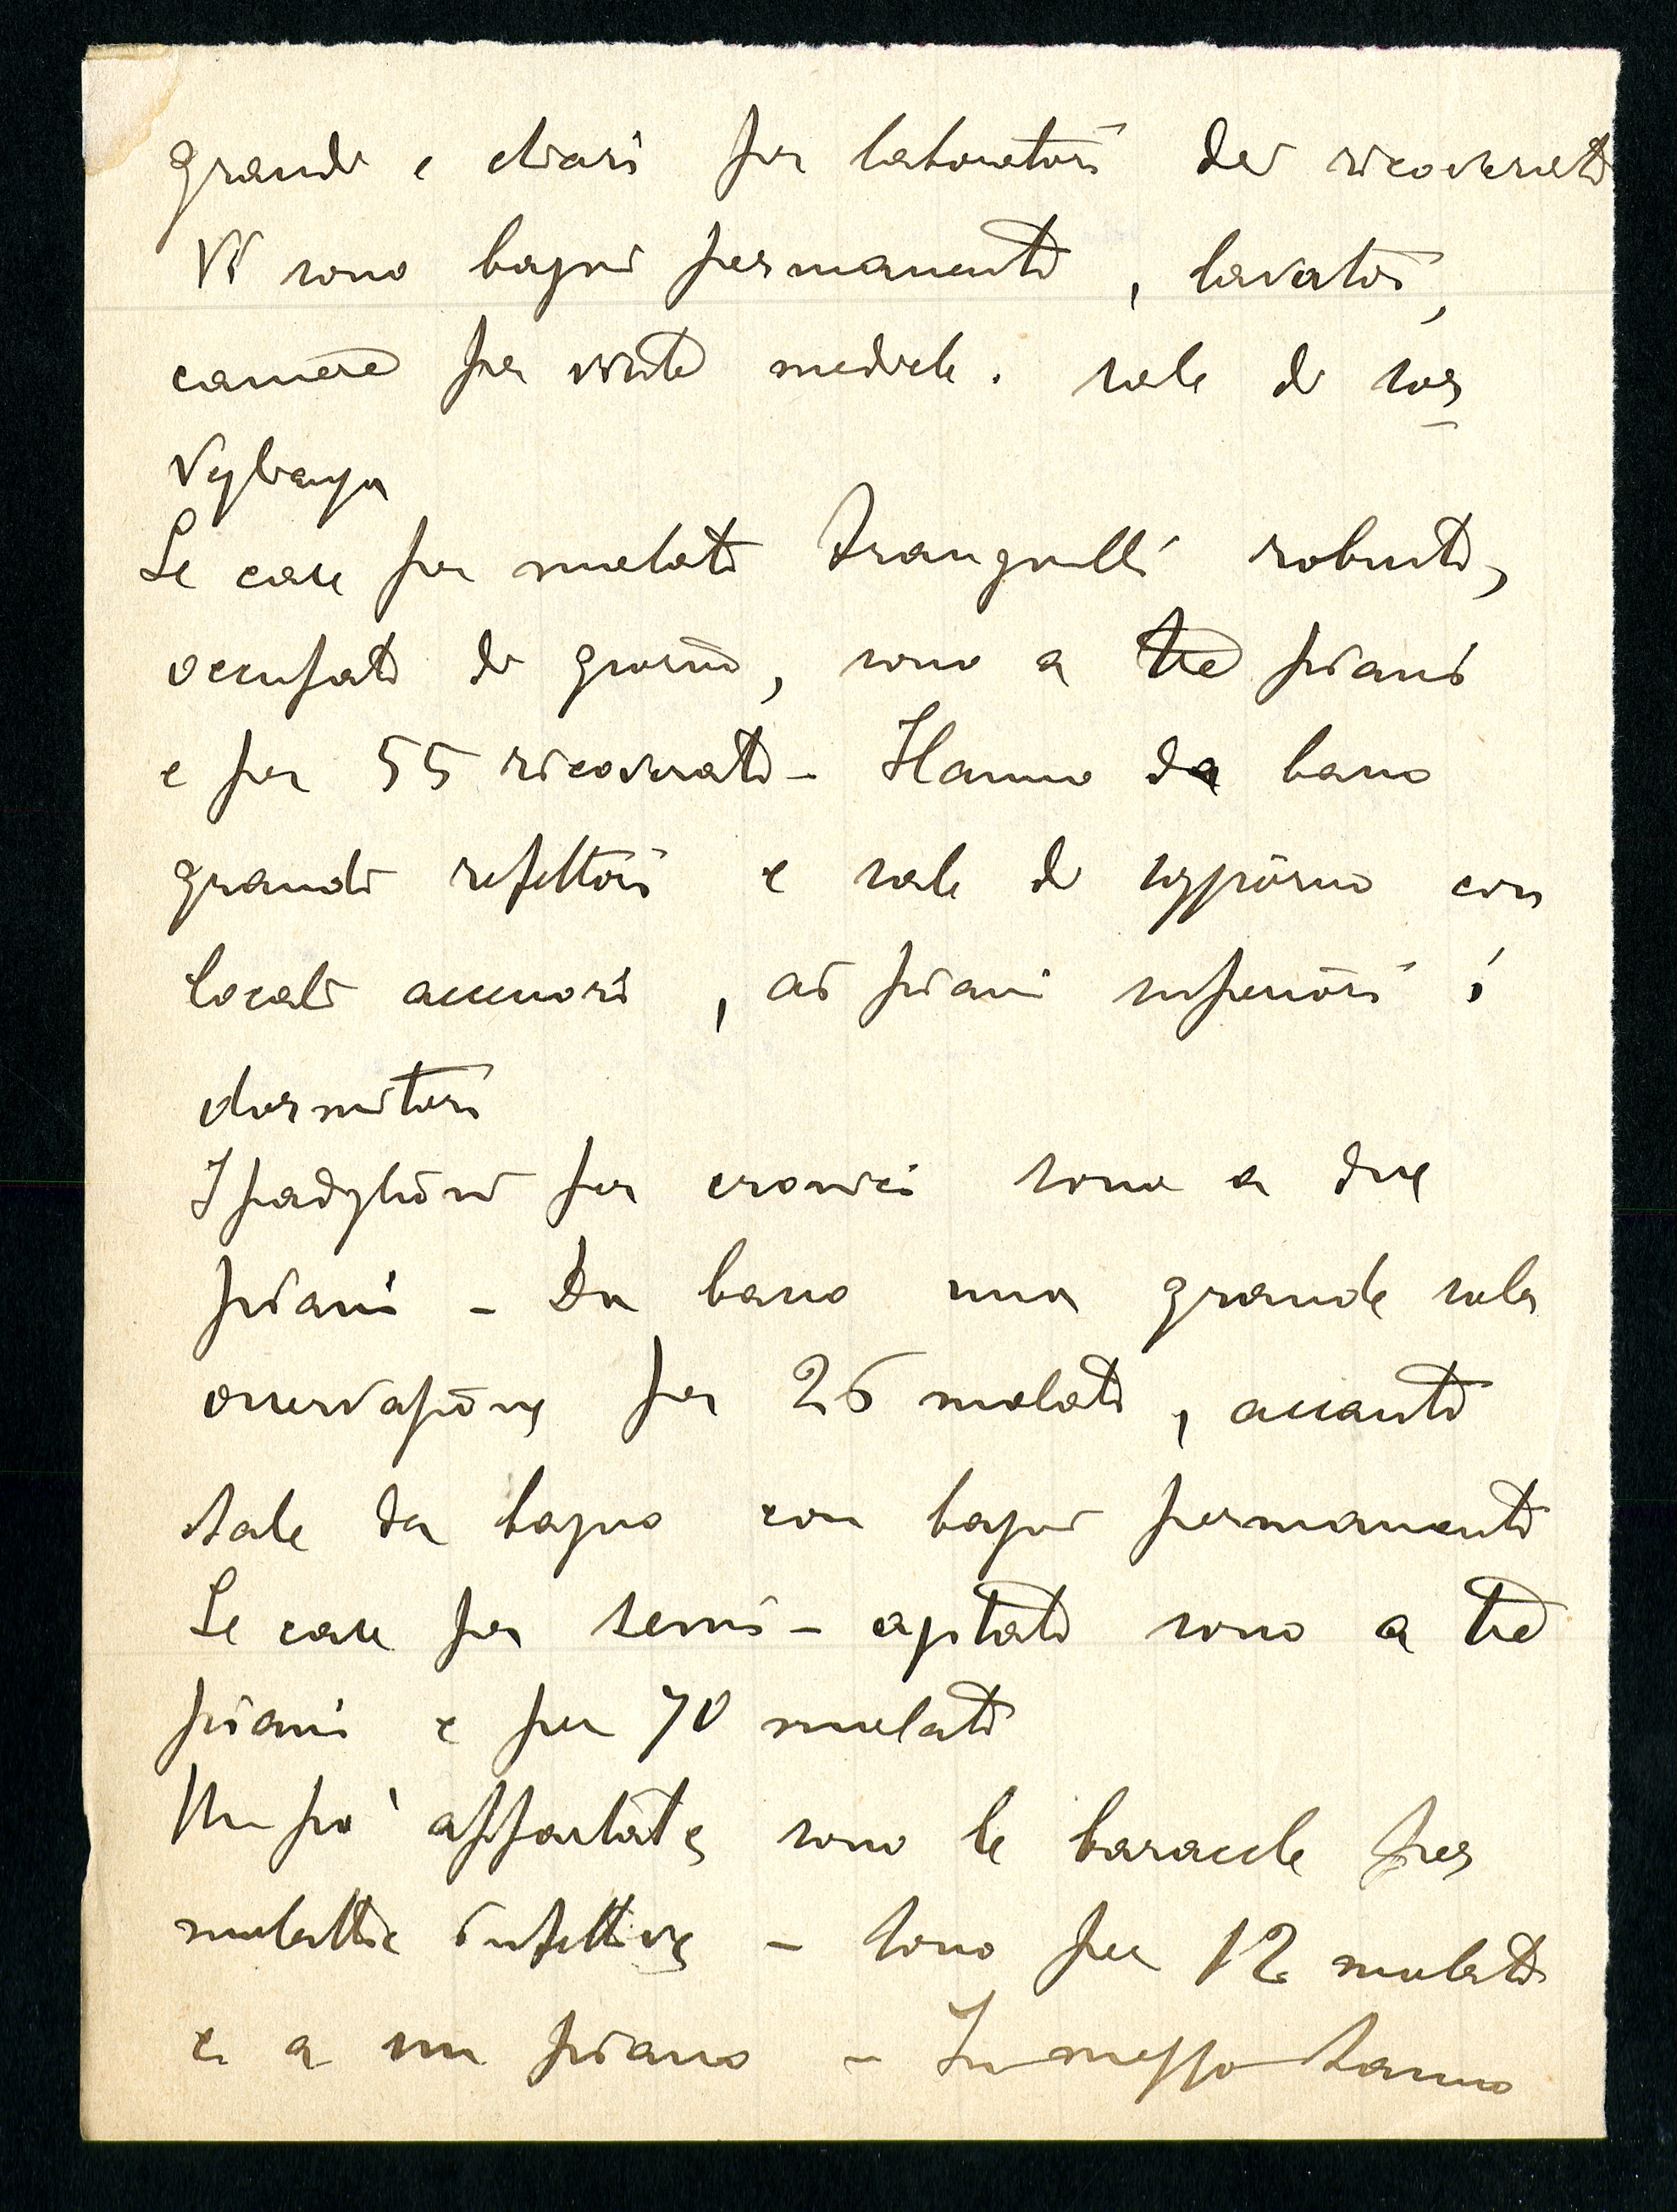 grandi e chiari per laboratori dei ricoverati
Vi sono bagni permanenti, lavatoi,
camere per visite mediche. sale di sor
veglianza
Le case per malati tranquilli robusti,
occupati di giorno, sono a tre piani
e per 55 ricoverati - Hanno da basso
grandi refettori e sale di soggiorno con
locali accessori, ai piani superiori i
dormitori
I padiglioni per cronici sono a due
piani - Da basso una grande sala
osservazione per 26 malati, accanto
sale da bagno con bagni permanenti
Le case per semi-agitati sono a tre
piani e per 70 malati
Un po' appartate sono le baracche per
malattie infettive - sono per 12 malati
e a un piano - In mezzo stanno